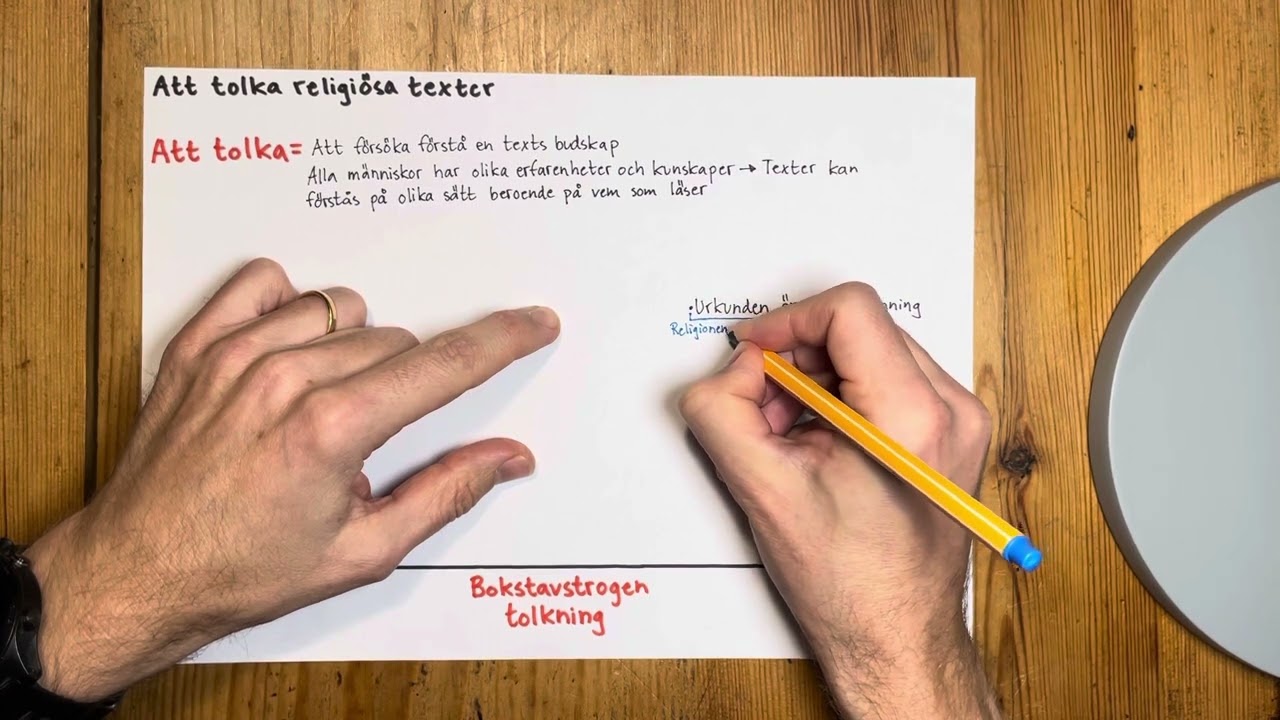 Att tolka religiösa texter
Att tolka= Att försöka förstå en texts budskap
Alla människor har olika erfarenheter och kunskaper → Texter kan
förstås på olika sätt beroende på vem som läser
•Urkunden
Religionen
Bokstavstrogen
tolkning